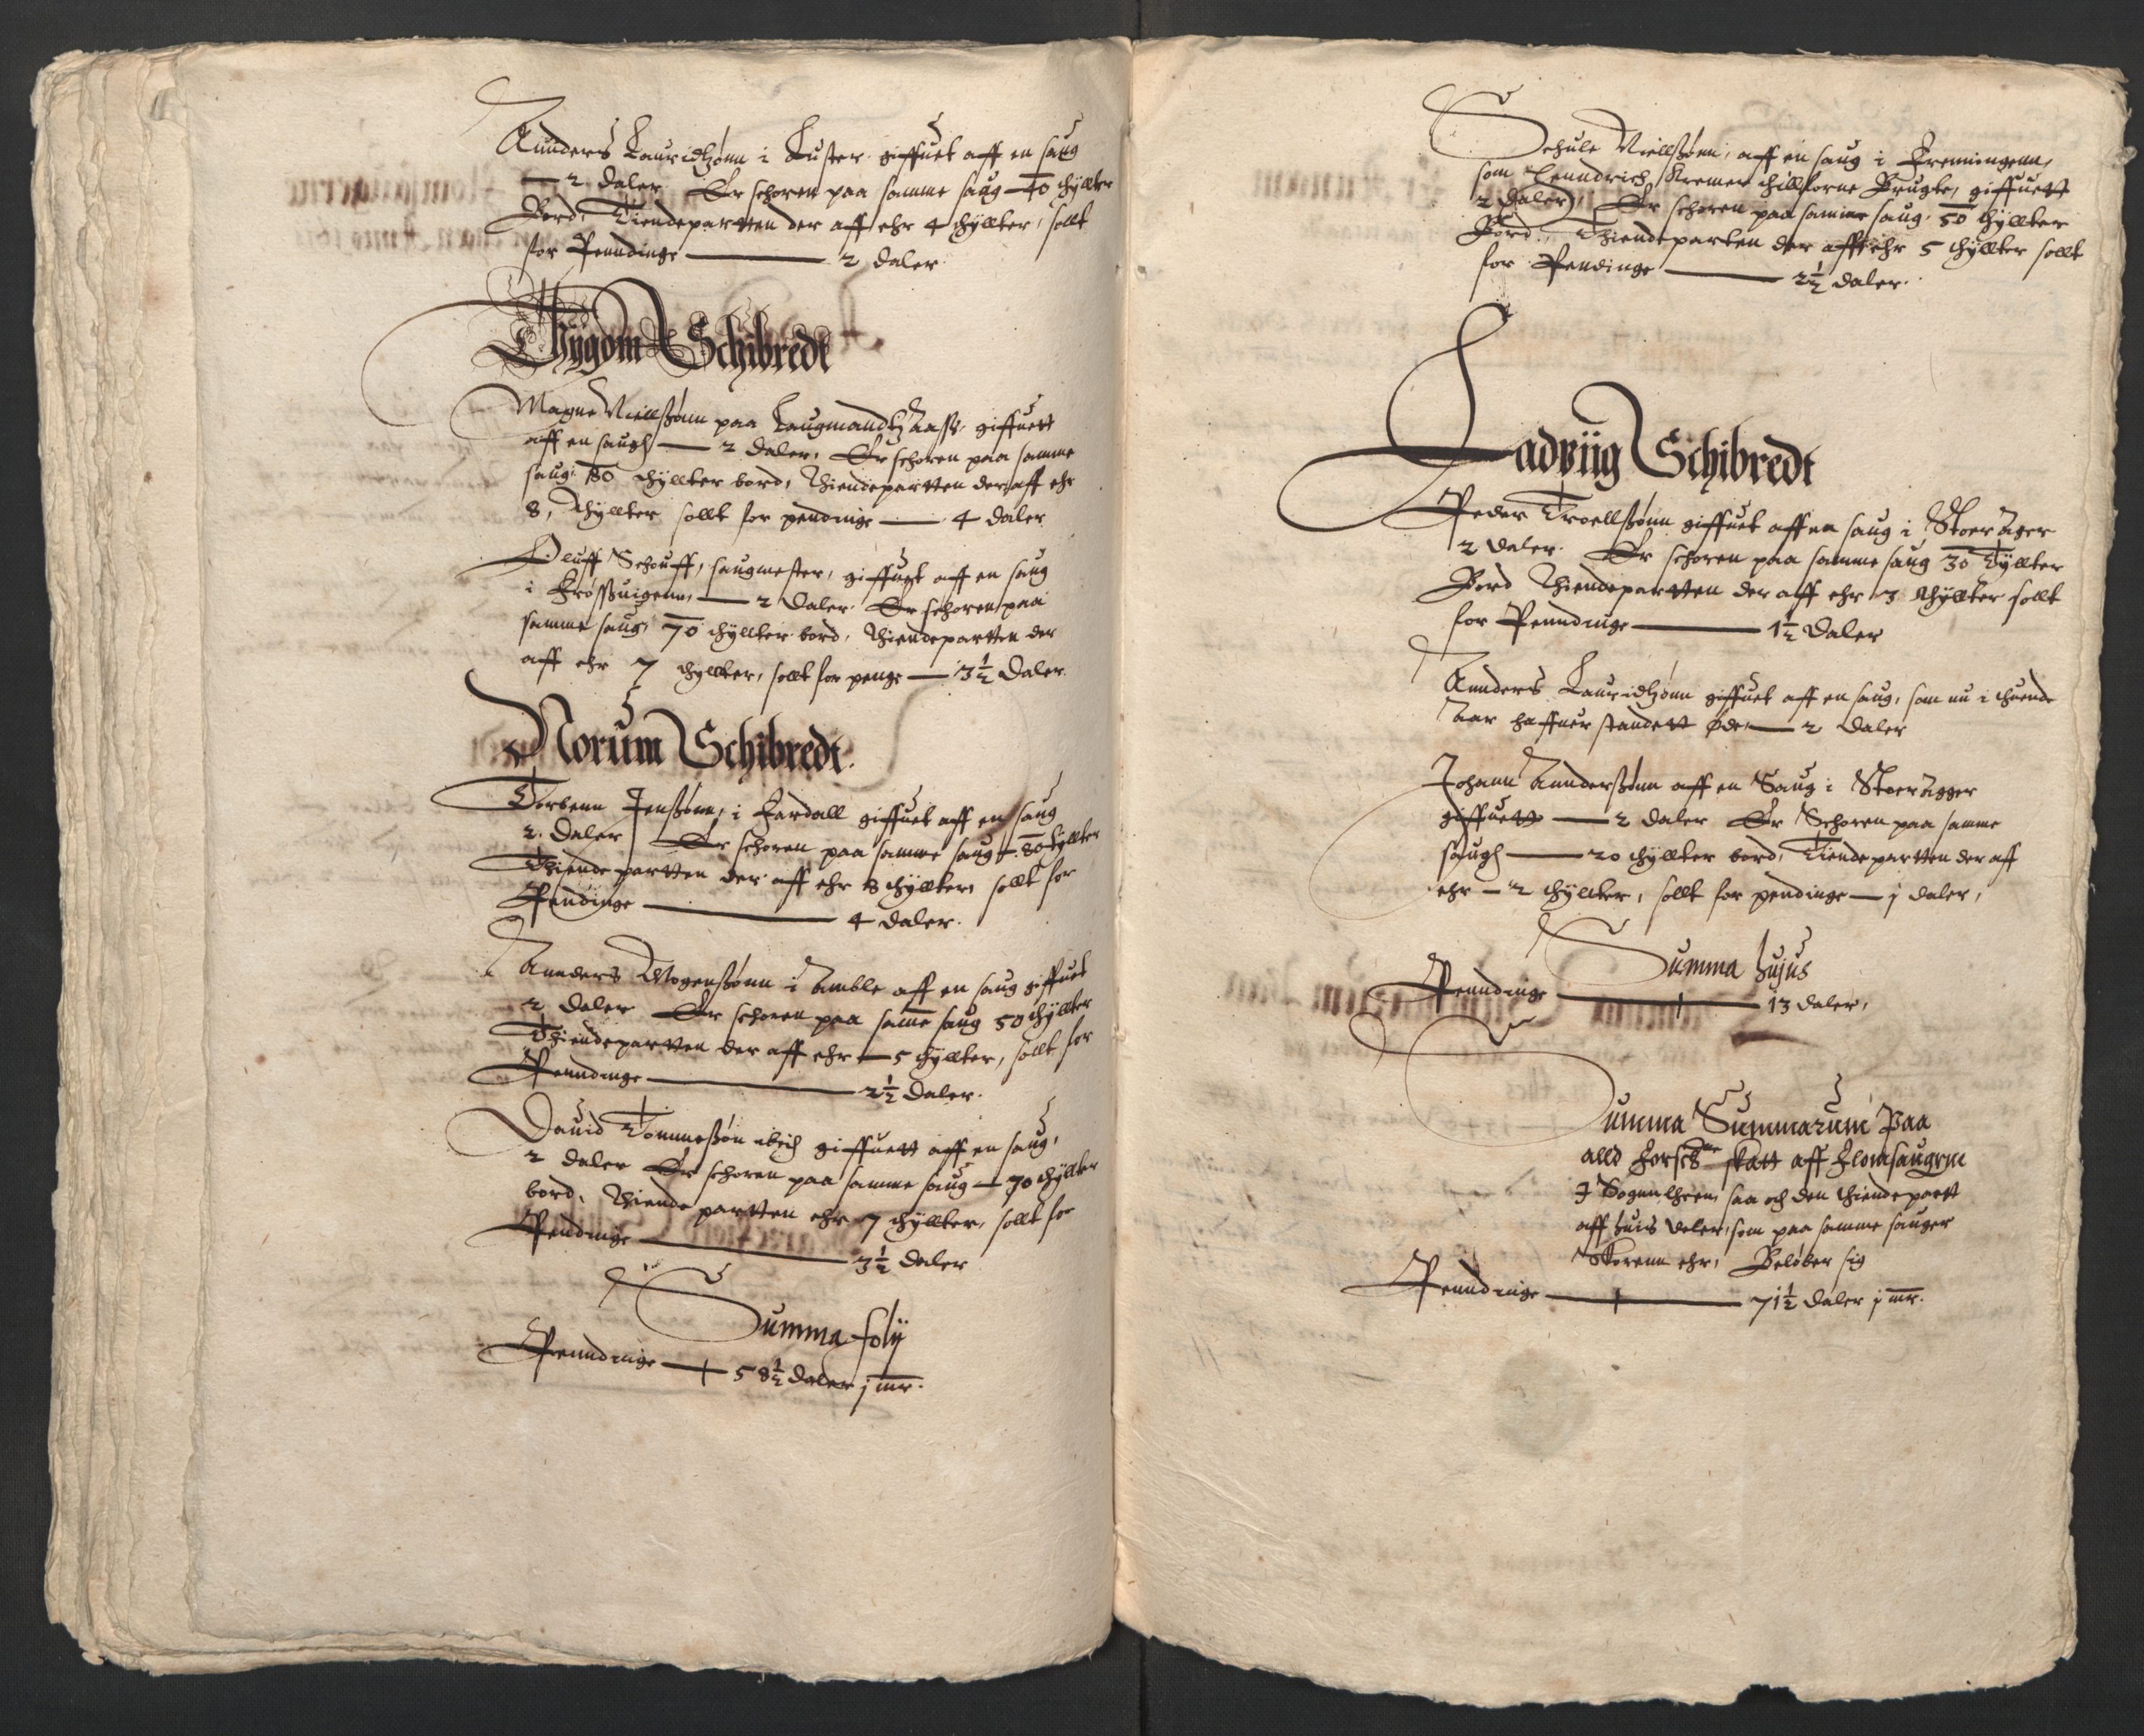 Anders Lauridtzønn i Luster giffuet aff en saug
— 2 daler Er schoren paa samme saug — 40 thyllter
Bord, Tiendepartten der aff ehr 4 thyllter, sollt
for Penndinge — 2 daler
Thygom Schibredt
Magne Niellssønn paa Laugmandtz Aass, giffuett
aff en saugh — 2 daler, Er schoren paa samme
saug 80 thyllter bord, Thiendepartten der aff ehr
8, thyllter sollt for pendinge — 4 daler
Oluff Schouff, saugmester, giffuet aff en saug
i Frøssuigenn, — 2 daler Er schoren paa
samme saug, 70 thyllter bord, Thiendepartten der
aff ehr 7 thyllter, sollt for penge — 3½ daler
Norum Schibredt
Torbenn Jenssønn, i Fardall giffuet aff en saug
2 daler Er schoren paa samme saug — 80 tyllter
Thiendepartten der aff ehr 8 thyllter, sollt for
Pendinge — 4 daler
Annders Mogenssønn i Amble aff en saug giffuet
2 daler Er schoren paa samme saug 50 thyllter
Thiendepartten der aff ehr — 5 thyllter, sollt for
Penndinge — 2½ daler
Dauid Tommessøn ibid giffuett aff en saug,
2 daler Er schoren paa samme saug — 70 thyllter
bord, Thiendepartten ehr 7 thyllter, sollt for
Pendinge — 3½ daler
Summa folij
Penndinge — 58½ daler j mr.
Schule Niellssønn, aff en saug i Fremmingenn,
som Henndrich Kremer thillforne Brugte, giffuett
2 daler, Er schoren paa samme saug, 50 thyllter
Bord, Thiendeparten der aff ehr 5 thyllter sollt
for Pendinge — 2½ daler
Ladviig Schibredt
Peder Troellssønn giffuet aff en saug i Stoer Ager
2 daler Er schoren paa samme saug 30 Tyllter
Bord Thiendepartten der aff ehr 3 thyllter sollt
for Penndinge — 1½ daler
Annders Lauridtzønn giffuet aff en saug, som nu i thuende
Aar haffuer standett øde, — 2 daler
Johann Annderssønn aff en Saug i Stoer Agger
giffuett — 2 daler Er Schoren paa samme
saugh — 20 thyllter bord, Tiendepartten der aff
ehr — 2 thyllter, sollt for pendinge — j daler,
Summa hujus
Penndinge — 13 daler,
Summa Summarum Paa
alld Forschne skatt aff Flomsaugene
I Sogun lheen, saa och den thiende partt
aff huis deler, som paa samme sauger
Skorenn ehr, Beløber sig
Penndinge — 71½ daler j mr.